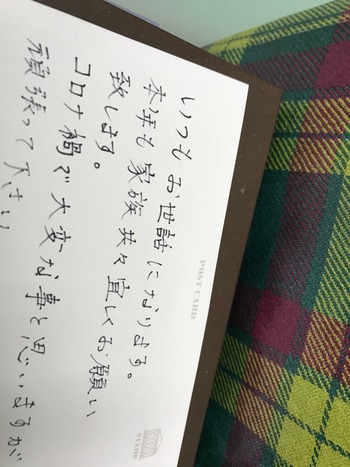 いつもお世話になります。
本年も家族共々宜しくお願い
致します。
コロナ禍で大変な事と思いますが
頑張って下さい
POST CARD
STAMP